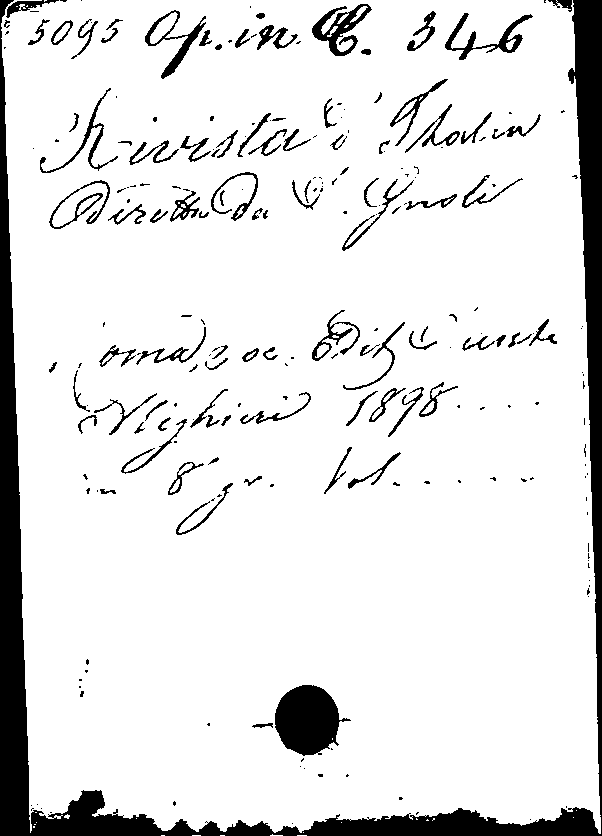 5095 Op. in C. 346
Rivista d' Italia
Diretta da D. Gnoli
Roma, Soc. Edit. Dante
Alighieri 1898....
in 8° gr. Vol.....